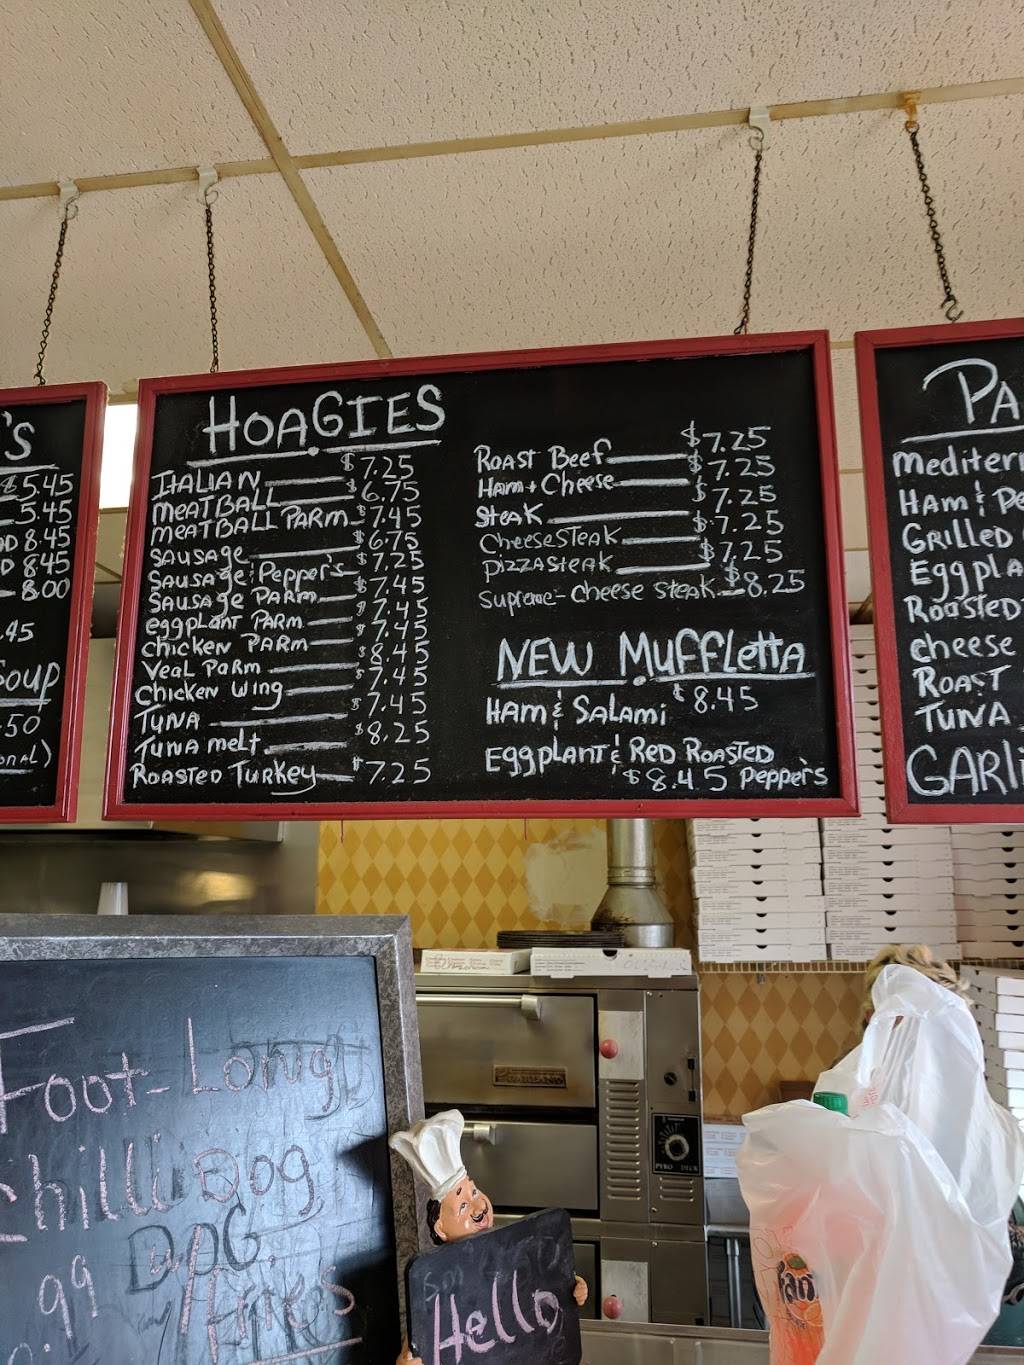 'S
$5.45
5.45
8.45
8.45
8.00
.45
Soup
.50
HOAGIES
ITALIAN $7.25
MEATBALL $6.75
MEATBALL PARM $7.45
SAUSAGE $6.75
SAUSAGE & Pepper's $7.25
SAUSAGE PARM $7.45
eggplant PARM $7.45
CHICKEN PARM $7.45
VEAL PARM $8.45
CHICKEN WING $7.45
TUNA $7.45
TUNA melt $8.25
ROASTED TURKEY $7.25
ROAST BEEF $7.25
HAM + CHEESE $7.25
STEAK $7.25
CHEESESTEAK $7.25
PIZZASTEAK $7.25
Supreme - cheese steak $8.25
NEW MUFFLETTA
HAM & SALAMI $8.45
EGGPLANT & RED ROASTED
$8.45 Pepper's
PA
Mediterr
HAM & Pe
GRILLED
Eggpla
ROASTED
cheese
ROAST
TUNA
GARLI
Foot-Long
Chilli Dog
.99
Fries
Hello
PYRO DECK
Fan